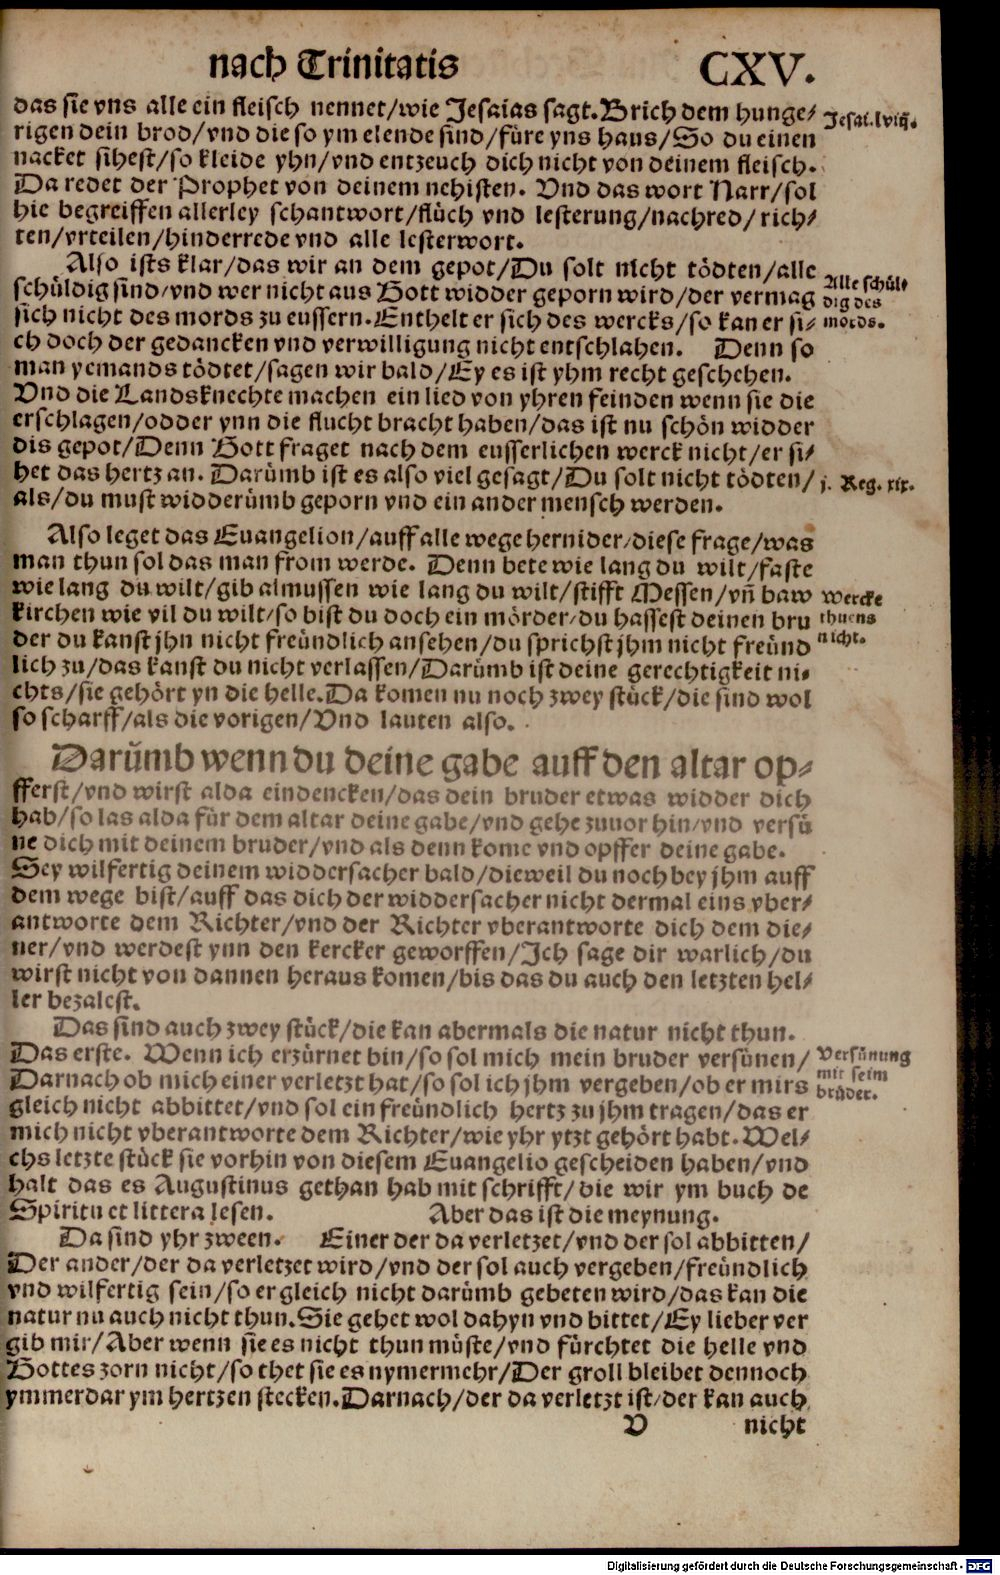 nach Trinitatis CXV.
das sie vns alle ein fleisch nennet/wie Jesaias sagt. Brich dem hunge-
rigen dein brod/vnd die so ym elende sind/füre yns haus/So du einen
nacket sihest/so kleide yhn/vnd entzeuch dich nicht von deinem fleisch.
Da redet der Prophet von deinem nehisten. Vnd das wort Narr/sol
hie begreiffen allerley schantwort/flüch vnd lesterung/nachred/rich-
ten/vrteilen/hinderrede vnd alle lesterwort.
Jesai.lviij.
Also ists klar/das wir an dem gepot/Du solt nicht tödten/alle
schüldig sind/vnd wer nicht aus Gott widder geporn wird/der vermag
sich nicht des mords zu eussern. Enthelt er sich des wercks/so kan er si-
ch doch der gedancken vnd verwilligung nicht entschlahen. Denn so
man yemands tödtet/sagen wir bald/Ey es ist yhm recht geschehen.
Vnd die Landsknechte machen ein lied von yhren feinden wenn sie die
erschlagen/odder ynn die flucht bracht haben/das ist nu schön widder
dis gepot/Denn Gott fraget nach dem eusserlichen werck nicht/er si-
het das hertz an. Darümb ist es also viel gesagt/Du solt nicht tödten/
als/du must widderümb geporn vnd ein ander mensch werden.
Alle schül-
dig des
mords.
j. Reg. xix.
Also leget das Euangelion/auff alle wege hernider/diese frage/was
man thun sol das man from werde. Denn bete wie lang du wilt/faste
wie lang du wilt/gib almussen wie lang du wilt/stifft Messen/vñ baw
kirchen wie vil du wilt/so bist du doch ein mörder/du hassest deinen bru
der du kanst jhn nicht freündlich ansehen/du sprichst jhm nicht freünd
lich zu/das kanst du nicht verlassen/Darümb ist deine gerechtigkeit ni-
chts/sie gehört yn die helle. Da komen nu noch zwey stück/die sind wol
so scharff/als die vorigen/Vnd lauten also.
Wercke
thuens
nicht.
Darümb wenn du deine gabe auff den altar op-
fferst/vnd wirst alda eindencken/das dein bruder etwas widder dich
hab/so las alda für dem altar deine gabe/vnd gehe zuuor hin/vnd versü
ne dich mit deinem bruder/vnd als denn kome vnd opffer deine gabe.
Sey wilfertig deinem widdersacher bald/dieweil du noch bey jhm auff
dem wege bist/auff das dich der widdersacher nicht dermal eins vber-
antworte dem Richter/vnd der Richter vberantworte dich dem die-
ner/vnd werdest ynn den kercker geworffen/Ich sage dir warlich/du
wirst nicht von dannen heraus komen/bis das du auch den letzten hel-
ler bezalest.
Das sind auch zwey stück/die kan abermals die natur nicht thun.
Das erste. Wenn ich erzürnet bin/so sol mich mein bruder versünen/
Darnach ob mich einer verletzt hat/so sol ich jhm vergeben/ob er mirs
gleich nicht abbittet/vnd sol ein freündlich hertz zu jhm tragen/das er
mich nicht vberantworte dem Richter/wie yhr ytzt gehört habt. Wel-
chs letzte stück sie vorhin von diesem Euangelio gescheiden haben/vnd
halt das es Augustinus gethan hab mit schrifft/die wir ym buch de
Spiritu et littera lesen. Aber das ist die meynung.
Versünung
mit seim
brüder.
Da sind yhr zween. Einer der da verletzet/vnd der sol abbitten/
Der ander/der da verletzet wird/vnd der sol auch vergeben/freündlich
vnd wilfertig sein/so er gleich nicht darümb gebeten wird/das kan die
natur nu auch nicht thun. Sie gehet wol dahyn vnd bittet/Ey lieber ver
gib mir/Aber wenn sie es nicht thun müste/vnd fürchtet die helle vnd
Gottes zorn nicht/so thet sie es nymermehr/Der groll bleibet dennoch
ymmerdar ym hertzen stecken. Darnach/der da verletzt ist/der kan auch
V nicht
Digitalisierung gefördert durch die Deutsche Forschungsgemeinschaft - DFG